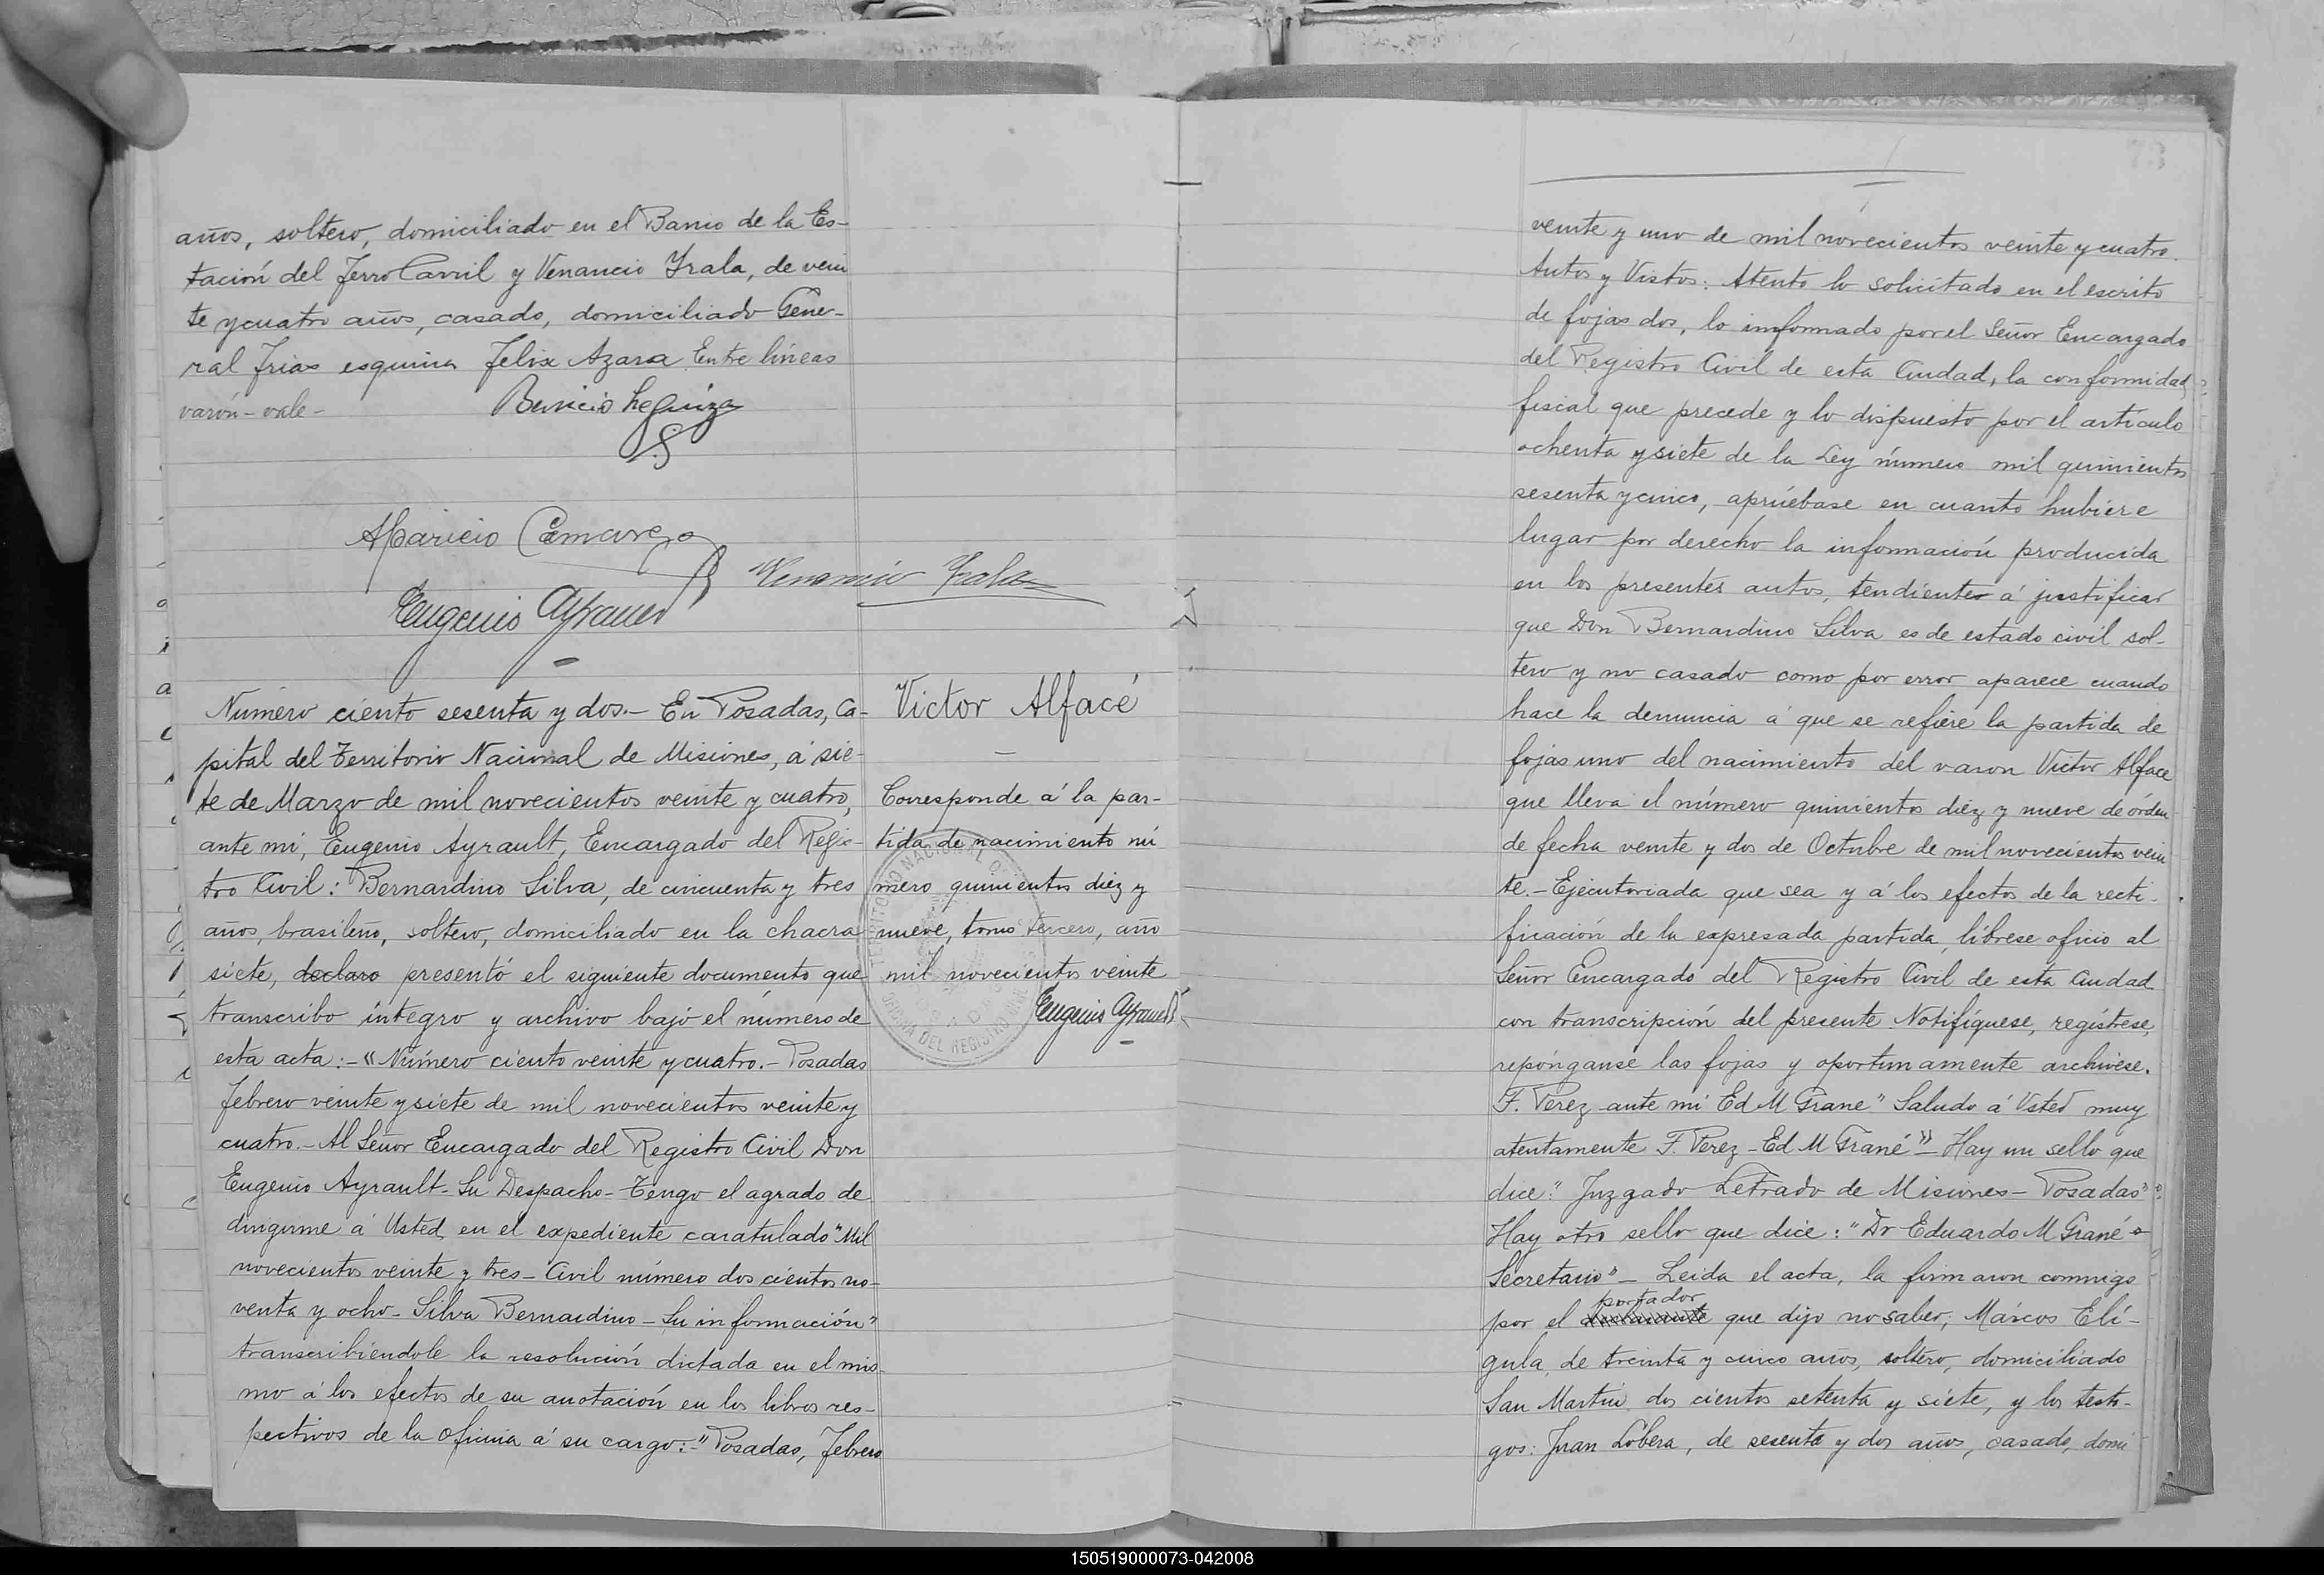 años, soltero, domiciliado en el Barrio de la Es-
tación del Ferro Carril y Venancio Irala, de vein
te y cuatro años, casado, domiciliado Gene-
ral Frias esquina Felix Azara Entre líneas
varón - vale -
Aparicio Camargo
Venancio Irala
Eugenio Ayrault
Número ciento sesenta y dos.- En Posadas, Ca-
pital del Territorio Nacional de Misiones, á sie-
te de Marzo de mil novecientos veinte y cuatro,
ante mi, Eugenio Ayrault, Encargado del Regis-
tro Civil: Bernardino Silva, de cincuenta y tres
años, brasileño, soltero, domiciliado en la chacra
siete, declaro presentó el siguiente documento que
transcribo íntegro y archivo bajo el número de
esta acta:- "Número ciento veinte y cuatro.- Posadas
Febrero veinte y siete de mil novecientos veinte y
cuatro.- Al Señor Encargado del Registro Civil Don
Eugenio Ayrault - Su Despacho - Tengo el agrado de
dirigirme á Usted en el expediente caratulado "Mil
novecientos veinte y tres - Civil número dos cientos no-
venta y ocho - Silva Bernardino - Su información"
transcribiéndole la resolución dictada en el mis-
mo á los efectos de su anotación en los libros res-
pectivos de la oficina á su cargo:- "Posadas, Febrero
Victor Alfacé
Corresponde á la par-
tida de nacimiento nú
mero quinientos diez y
nueve, tomo tercero, año
mil novecientos veinte
Eugenio Ayrault
veinte y uno de mil novecientos veinte y cuatro.
Autos y Vistos: Atento lo solicitado en el escrito
de fojas dos, lo informado por el Señor Encargado
del Registro Civil de esta Ciudad, la conformidad
fiscal que precede y lo dispuesto por el artículo
ochenta y siete de la Ley número mil quinientos
sesenta y cinco, apruébase en cuanto hubiere
lugar por derecho la información producida
en los presentes autos, tendientes á justificar
que Don Bernardino Silva es de estado civil sol-
tero y no casado como por error aparece cuando
hace la denuncia á que se refiere la partida de
fojas uno del nacimiento del varon Victor Alface
que lleva el número quinientos diez y nueve de órden
de fecha veinte y dos de Octubre de mil novecientos vein
te.- Ejecutoriada que sea y á los efectos de la recti-
ficación de la expresada partida, líbrese oficio al
Señor Encargado del Registro Civil de esta Ciudad
con transcripción del presente Notifíquese, regístrese,
repónganse las fojas y oportunamente archivese.
F. Perez ante mi Ed M Grane" Saludo á Usted muy
atentamente F. Perez - Ed M Grané" - Hay un sello que
dice: "Juzgado Letrado de Misiones - Posadas"
Hay otro sello que dice: "Dr Eduardo M Grané -
Secretario" - Leida el acta, la firmaron conmigo
portador
por el que dijo no saber, Márcos Elí-
gula, de treinta y cinco años, soltero, domiciliado
San Martin dos cientos setenta y siete, y los testi-
gos: Juan Lobera, de sesenta y dos años, casado, domi
150519000073-042008